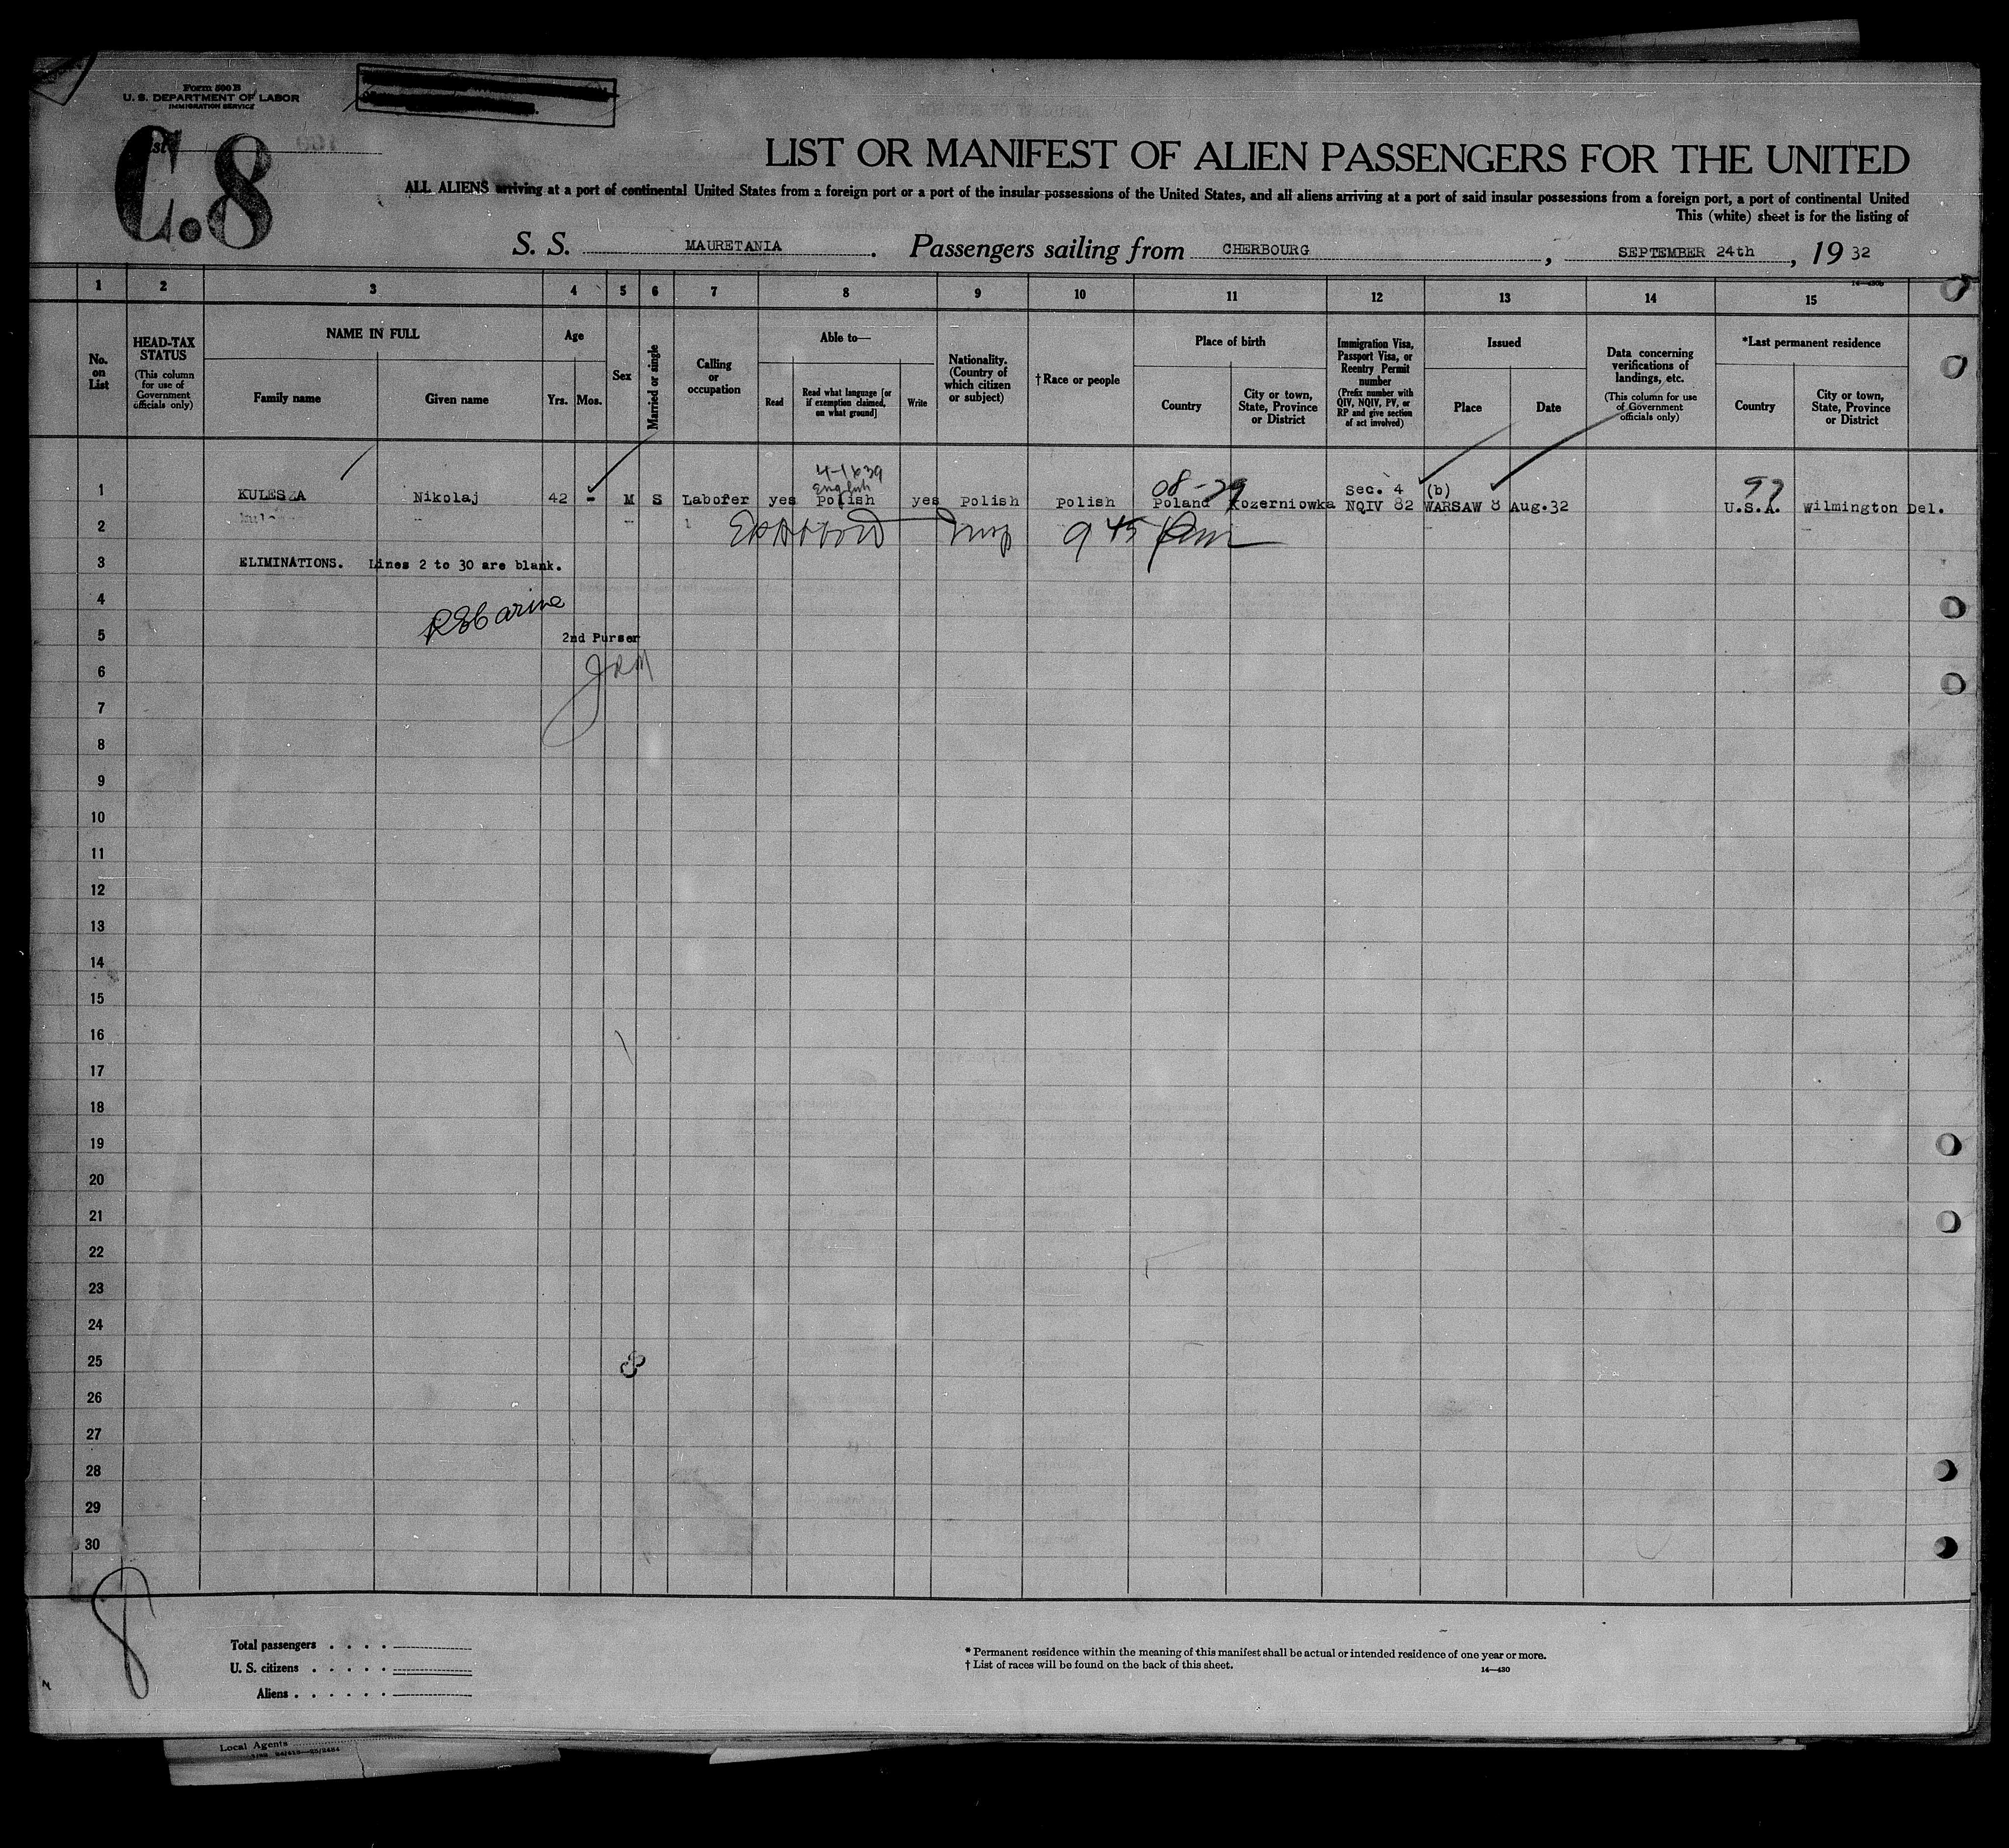 Form 500 B
U. S. DEPARTMENT OF LABOR
IMMIGRATION SERVICE
C.8
LIST OR MANIFEST OF ALIEN PASSENGERS FOR THE UNITED
ALL ALIENS arriving at a port of continental United States from a foreign port or a port of the insular possessions of the United States, and all aliens arriving at a port of said insular possessions from a foreign port, a port of continental United
This (white) sheet is for the listing of
S. S. MAURETANIA. Passengers sailing from CHERBOURG, SEPTEMBER 24th, 19 32
1 2 3 4 5 6 7 8 9 10 11 12 13 14 15
No. on List
HEAD-TAX STATUS
(This column for use of Government officials only)
NAME IN FULL
Family name
Given name
Age
Yrs. Mos.
Sex
Married or single
Calling or occupation
Able to—
Read
Read what language [or if exemption claimed, on what ground]
Write
Nationality. (Country of which citizen or subject)
†Race or people
Place of birth
Country
City or town, State, Province or District
Immigration Visa, Passport Visa, or Reentry Permit number
(Prefix number with QIV, NQIV, PV, or RP and give section of act involved)
Issued
Place
Date
Data concerning verifications of landings, etc.
(This column for use of Government officials only)
*Last permanent residence
Country
City or town, State, Province or District
English
08-29
Sec. 4 (b)
1 KULESZA Nikolaj 42 - M S Laborer yes Polish yes Polish Polish Poland Kozerniowka NQIV 82 WARSAW 8 Aug.32 U.S.A. Wilmington Del.
2
3 ELIMINATIONS. Lines 2 to 30 are blank.
4
5 2nd Purser
6
7
8
9
10
11
12
13
14
15
16
17
18
19
20
21
22
23
24
25
26
27
28
29
30
Total passengers . . . .
U. S. citizens . . . . .
Aliens . . . . . .
* Permanent residence within the meaning of this manifest shall be actual or intended residence of one year or more.
† List of races will be found on the back of this sheet.
14—430
Local Agents